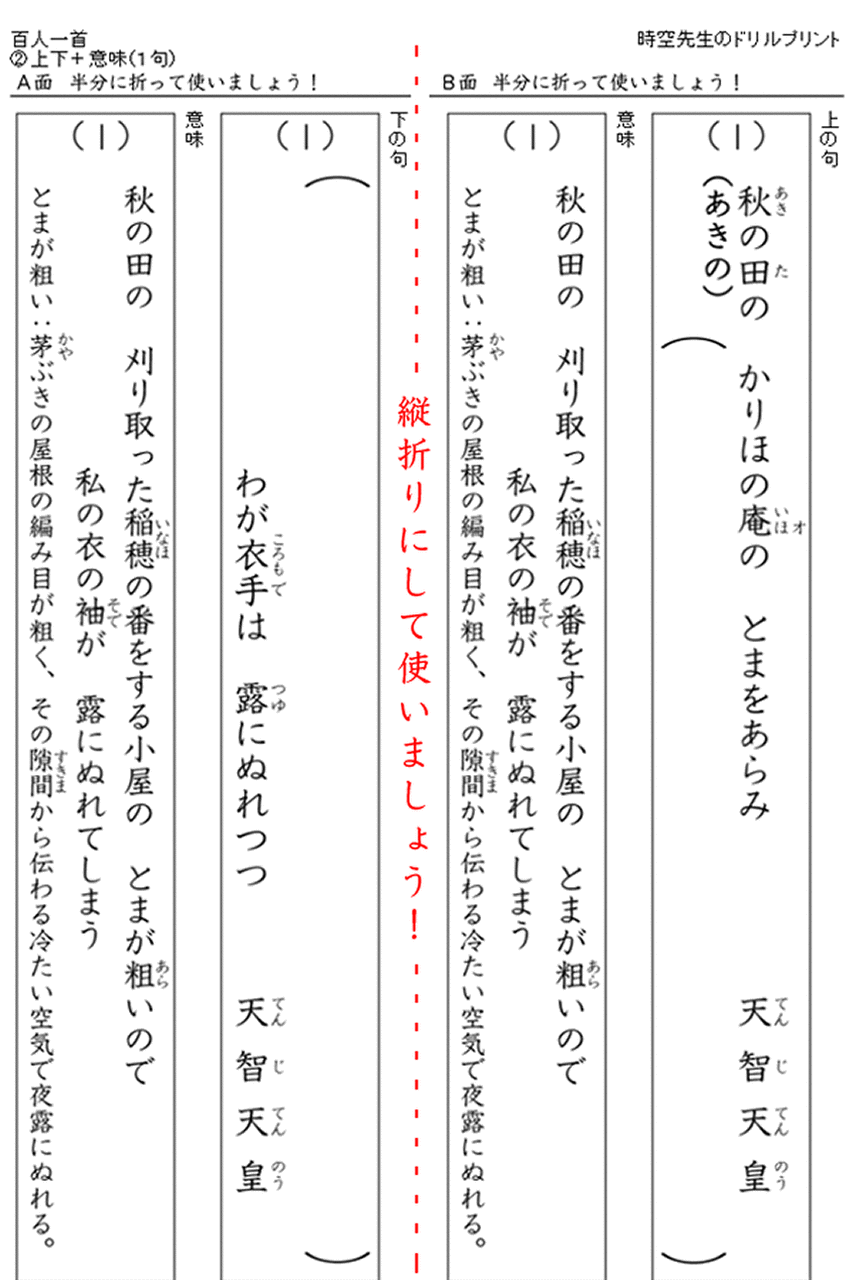 百人一首
②上下+意味(1句)
時空先生のドリルプリント
B面 半分に折って使いましょう!
上の句
(1)
秋の田の かりほの庵の とまをあらみ 天智天皇
あき た いほ オ てん じ てん のう
(あきの)
( )
意味
(1)
秋の田の 刈り取った稲穂の番をする小屋の とまが粗いので
いなほ あら
私の衣の袖が 露にぬれてしまう
そで
とまが粗い:茅ぶきの屋根の編み目が粗く、その隙間から伝わる冷たい空気で夜露にぬれる。
かや すきま
縦折りにして使いましょう!
A面 半分に折って使いましょう!
下の句
(1)
( )
わが衣手は 露にぬれつつ 天智天皇
ころもで つゆ てん じ てん のう
意味
(1)
秋の田の 刈り取った稲穂の番をする小屋の とまが粗いので
いなほ あら
私の衣の袖が 露にぬれてしまう
そで
とまが粗い:茅ぶきの屋根の編み目が粗く、その隙間から伝わる冷たい空気で夜露にぬれる。
かや すきま